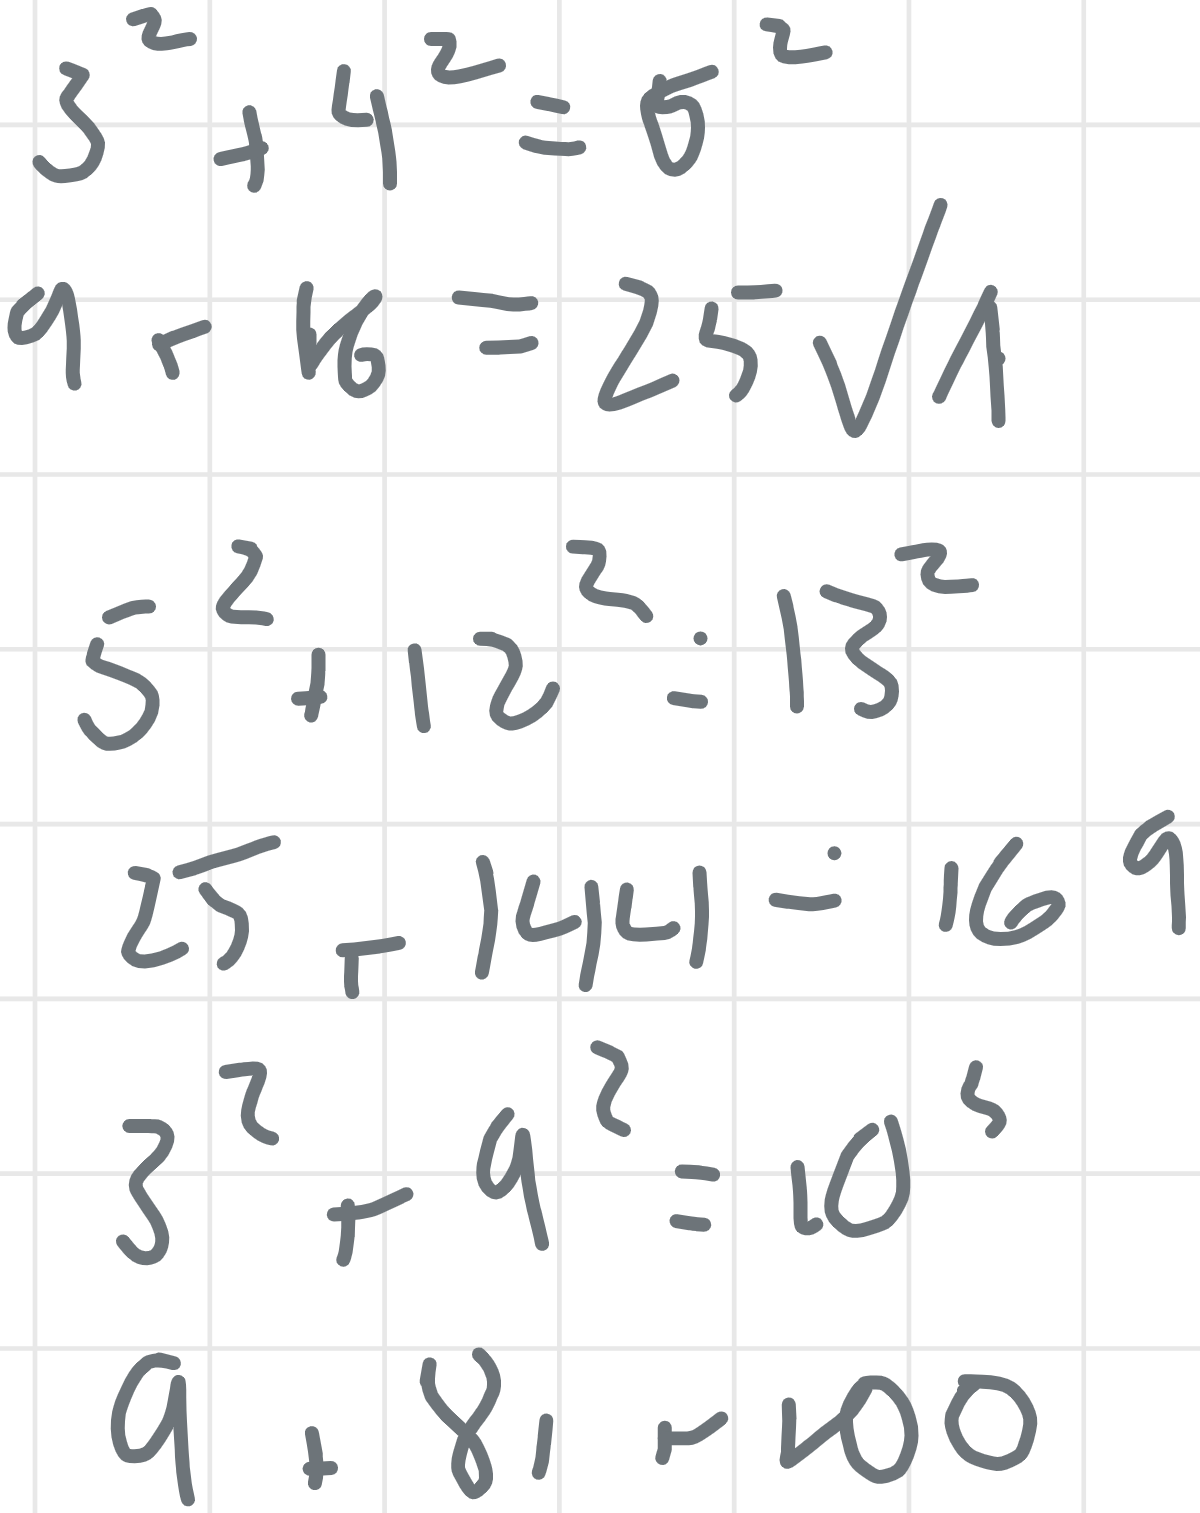 3² + 4² = 5²
9 + 16 = 25 √ 1
5² + 12² = 13²
25 + 144 = 169
3² + 9² = 10²
9 + 81 = 100